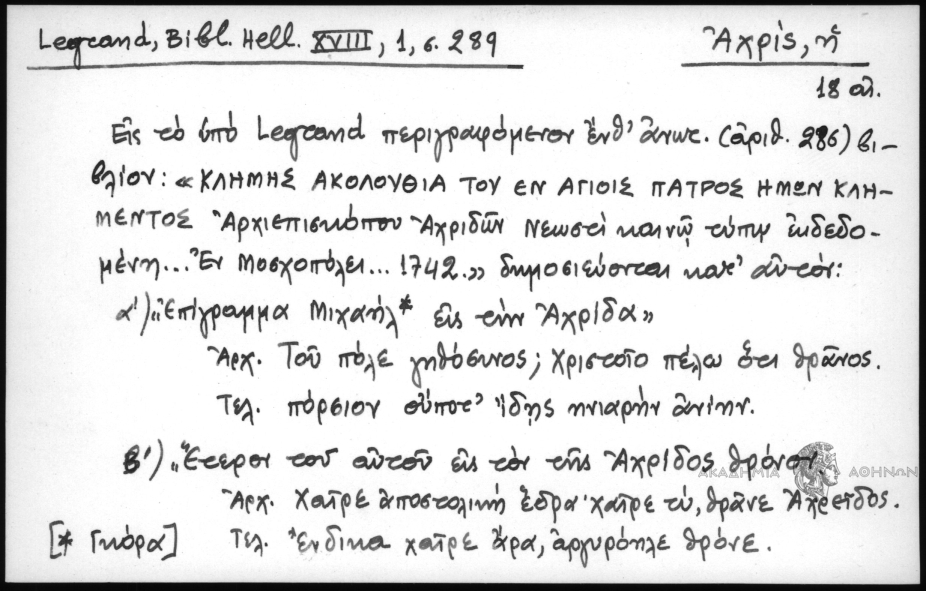 Legrand, Bibl. Hell. XVIII, 1, σ. 289
Ἀχρίς, ἡ
18 αἰ.
Εἰς τὸ ὑπὸ Legrand περιγραφόμενον ἔνθ' ἀνωτ. (ἀριθ. 286) βι-
βλίον: «ΚΛΗΜΗΣ ΑΚΟΛΟΥΘΙΑ ΤΟΥ ΕΝ ΑΓΙΟΙΣ ΠΑΤΡΟΣ ΗΜΩΝ ΚΛΗ-
ΜΕΝΤΟΣ Ἀρχιεπισκόπου Ἀχριδῶν Νεωστὶ καινῷ τύπῳ ἐκδεδο-
μένη... Ἐν Μοσχοπόλει... 1742.» δημοσιεύονται κατ' αὐτόν:
α') «Ἐπίγραμμα Μιχαὴλ* εἰς τὴν Ἀχρίδα»
Ἀρχ. Τοῦ πόλε γηθόσυνος; Χριστοῖο πέλω ὅτι θρᾶνος.
Τελ. πόρσιον οὔποτ' ἴδῃς ἡνιαρὴν ἀνίην.
β') «Ἕτεροι τοῦ αὐτοῦ εἰς τὸν τῆς Ἀχρίδος θρόνον.
ΑΚΑΔΗΜΙΑ ΑΘΗΝΩΝ
Ἀρχ. Χαῖρε ἀποστολικὴ ἕδρα· χαῖρε τύ, θρᾶνε Ἀχρεῖδος.
[* Γκόρα] Τελ. Ἔνδικα χαῖρε ἄρα, ἀργυρόηλε θρόνε.